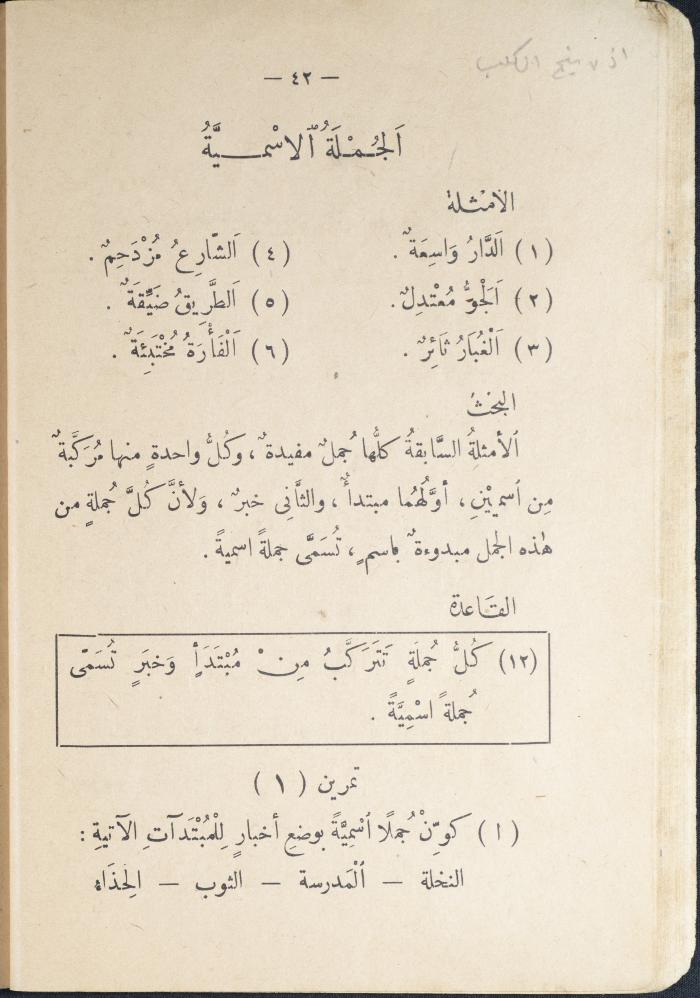 — ٤٢ —
اَلجُـمْـلَةُ ٱلاسْمـيَّةُ
الأمْثلة
(١) اَلدَّارُ وَاسِعَةٌ . (٤) اَلشّارِعُ مُزْدَحِمٌ .
(٢) اَلْجَوُّ مُعْتَدِلٌ . (٥) اَلطَّرِيقُ ضَيِّقَةٌ .
(٣) اَلْغُبَارُ ثَائِرٌ . (٦) اَلْفَأْرَةُ مُخْتَبِئَةٌ .
البحْث
اَلأمثلةُ السَّابقةُ كلُّها جُملٌ مفيدةٌ ، وكُلُّ واحدةٍ منها مُرَكَّبةٌ
مِن ٱسميْنِ ، أوَّلُهُما مبتدأٌ ، والثَّانى خبرٌ ، وَلأنَّ كُلَّ جُملةٍ من
هٰذه الجمل مبدوءةٌ باسمٍ ، تُسَمَّى جملةً اسميةً .
القَـاعدة
(١٢) كُلُّ جُملَةٍ تَتَرَكَّبُ مِنْ مُبْتَدَأٍ وَخبَرٍ تُسَمّى
جُملةً اسْمِيَّةً .
تمرين (١)
(ا) كوِّنْ جُملًا ٱسْمِيَّةً بوضعِ أخبارٍ لِلْمُبْتَدَآتِ الآتيةِ :
النخلة — اَلْمَدرسة — الثوب — الحِذَاء